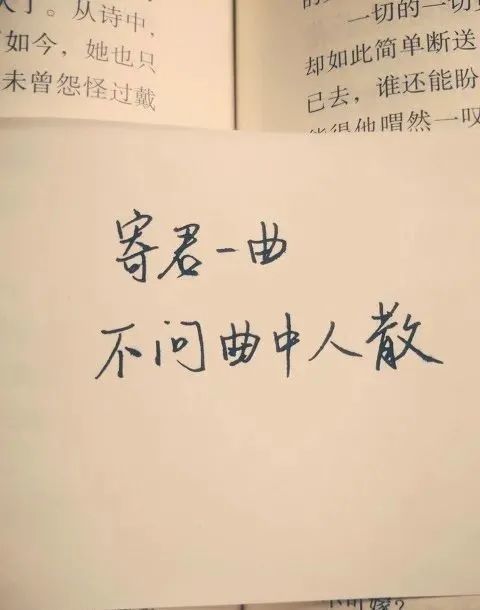 人了。从诗中,
如今,她也只
未曾怨怪过戴
一切的一切
却如此简单断送
已去,谁还能盼
能得他喟然一叹
寄君一曲
不问曲中人散